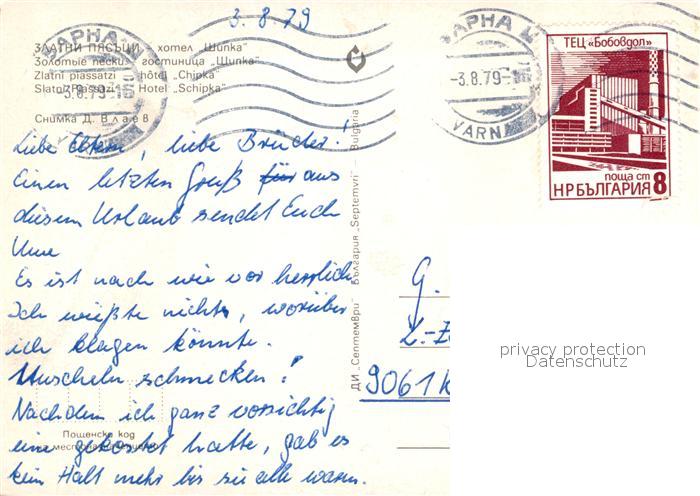 3.8.79
ЗЛАТНИ ПЯСЪЦИ хотел „Шипка"
Золотые пески гостиница „Шипка"
Zlatni piassatzi hôtel „Chipka"
Slatni Piassazi Hotel „Schipka"
Снимка Д. Влаев
ВАРНА
3.8.79
ВАРНА
-3.8.79-
VARNA
ТЕЦ „Бобовдол"
поща ст
НР БЪЛГАРИЯ 8
Liebe Eltern, liebe Brüder!
Einen letzten Gruß für aus
diesem Urlaub sendet Euch
Uwe
Es ist nach wie vor herrlich
Ich wüßte nichts, worüber
ich klagen könnte.
Muscheln schmecken!
Nachdem ich ganz vorsichtig
eine gekostet hatte, gab es
kein Halt mehr bis sie alle waren.
Пощенски код
ДИ „Септември" България „Septemvri" Bulgaria
G.
9061 K
privacy protection
Datenschutz